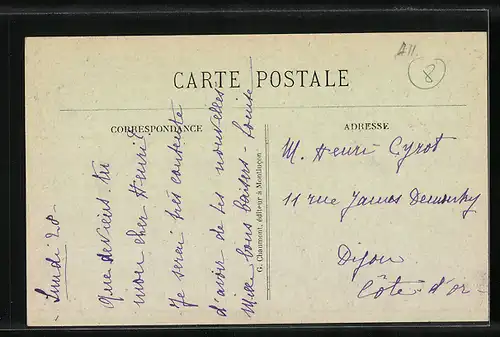 All.
8
CARTE POSTALE
CORRESPONDANCE
ADRESSE
Lundi 28
Que deviens tu
mon cher Henri
Je serai très contente
d'avoir de tes nouvelles
Mille bons baisers - Louise
G. Chaumont, éditeur à Montluçon
M. Henri Cyrot
11 rue James Demontry
Dijon
Côte-d'or